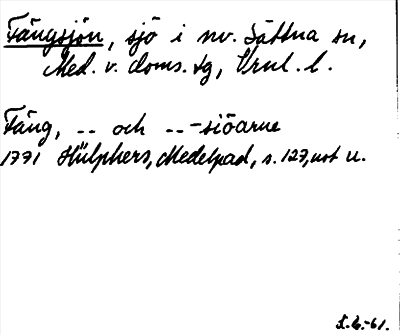 Fångsjön, sjö i nv. Sättna sn,
Med. v. doms. tg, Vrnl. l.
Fång, -- och -- -siöarne
1771 Hülphers, Medelpad, s. 127, not u.
L.E.-61.